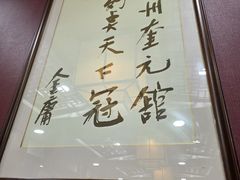 州奎元館
天下冠
金庸